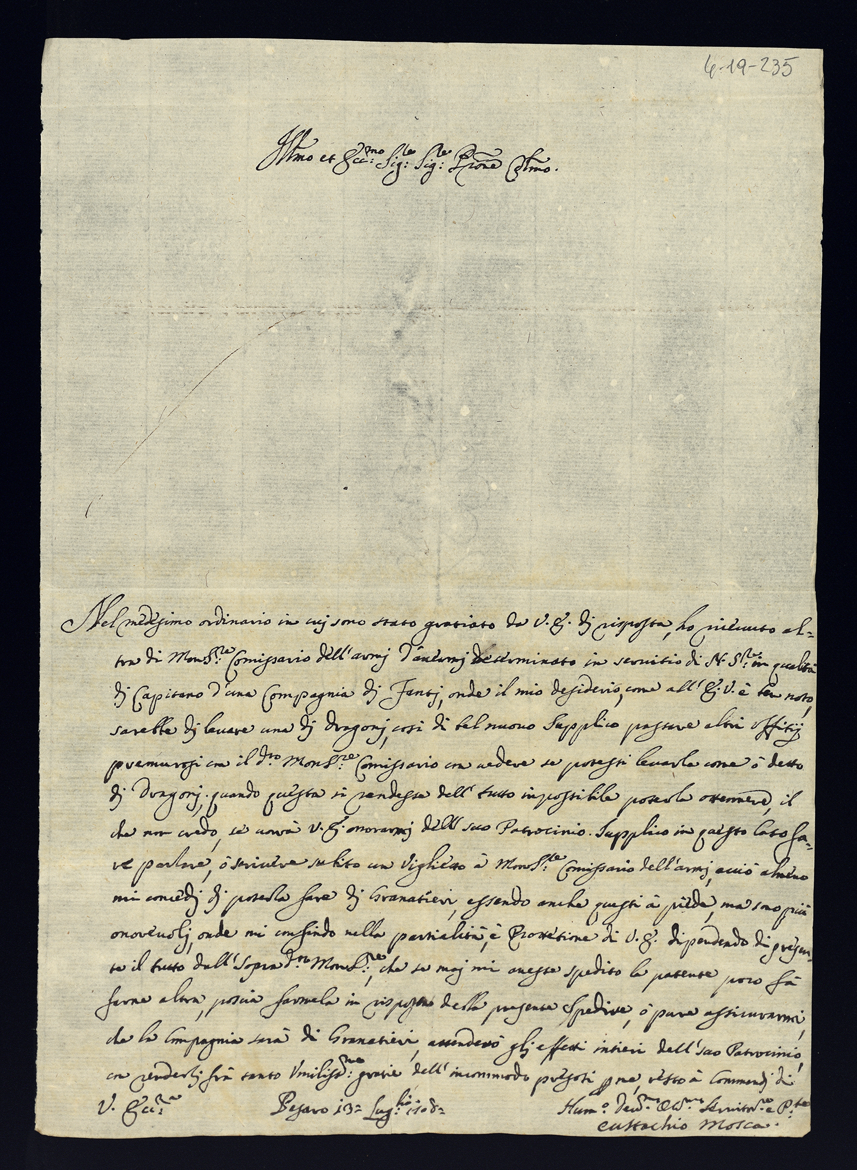 4-19-235
Ill.mo et Ecc.mo Sig.re Sig.re P.rone Col.mo
Nel medesimo ordinario in cuj sono stato gratiato da V. E. dj risposta, ho riceuuto al=
tra di Mons.re Comissario dell'armj d'auermj determinato in seruitio di N. S.re in qualità
dj Capitano d'una Compagnia dj Fantj, onde il mio desiderio, come all'E. V. è ben noto,
sarebbe dj leuare una dj dragonj, così di bel nuouo Supplico passare altri Offitij
premurosi con il d.to Mons.re Comissario con uedere se potessi leuarla come ò detto
dj Dragonj; quando questa si rendesse dell'tutto impossibile poterla ottennere, il
che non credo, se uorrà V. E. onorarmj dell'suo Patrocinio. Supplico in questo caso fa=
re parlare, ò scriuere subito un Viglietto à Mons.re Comissario dell'armj, acciò almeno
mi concedj dj poterla fare dj Granatieri, essendo anche questi à piede, ma sono più
onoreuolj, onde mi confindo nella partialità, è Protetione di V. E. dipendendo dj presen=
te il tutto dall'Sopra d.to Mons.re, che se maj mi auesse spedito la patente poco fà
farne altra, poscia farmela in risposta della presente Spedire, ò pure assicurarmj,
che la Compagnia sarà di Granatieri, attenderò glj effetti intieri dell'suo Patrocinio,
con renderlj frà tanto Vmiliss.me gratie dell'incommodo presosi p me, resto à Commandj di
V. Ecc.za Pesaro 13 Lug.lio
Hum.o Deu.mo Obl.mo Seruitor.e
Eustachio Mosca.